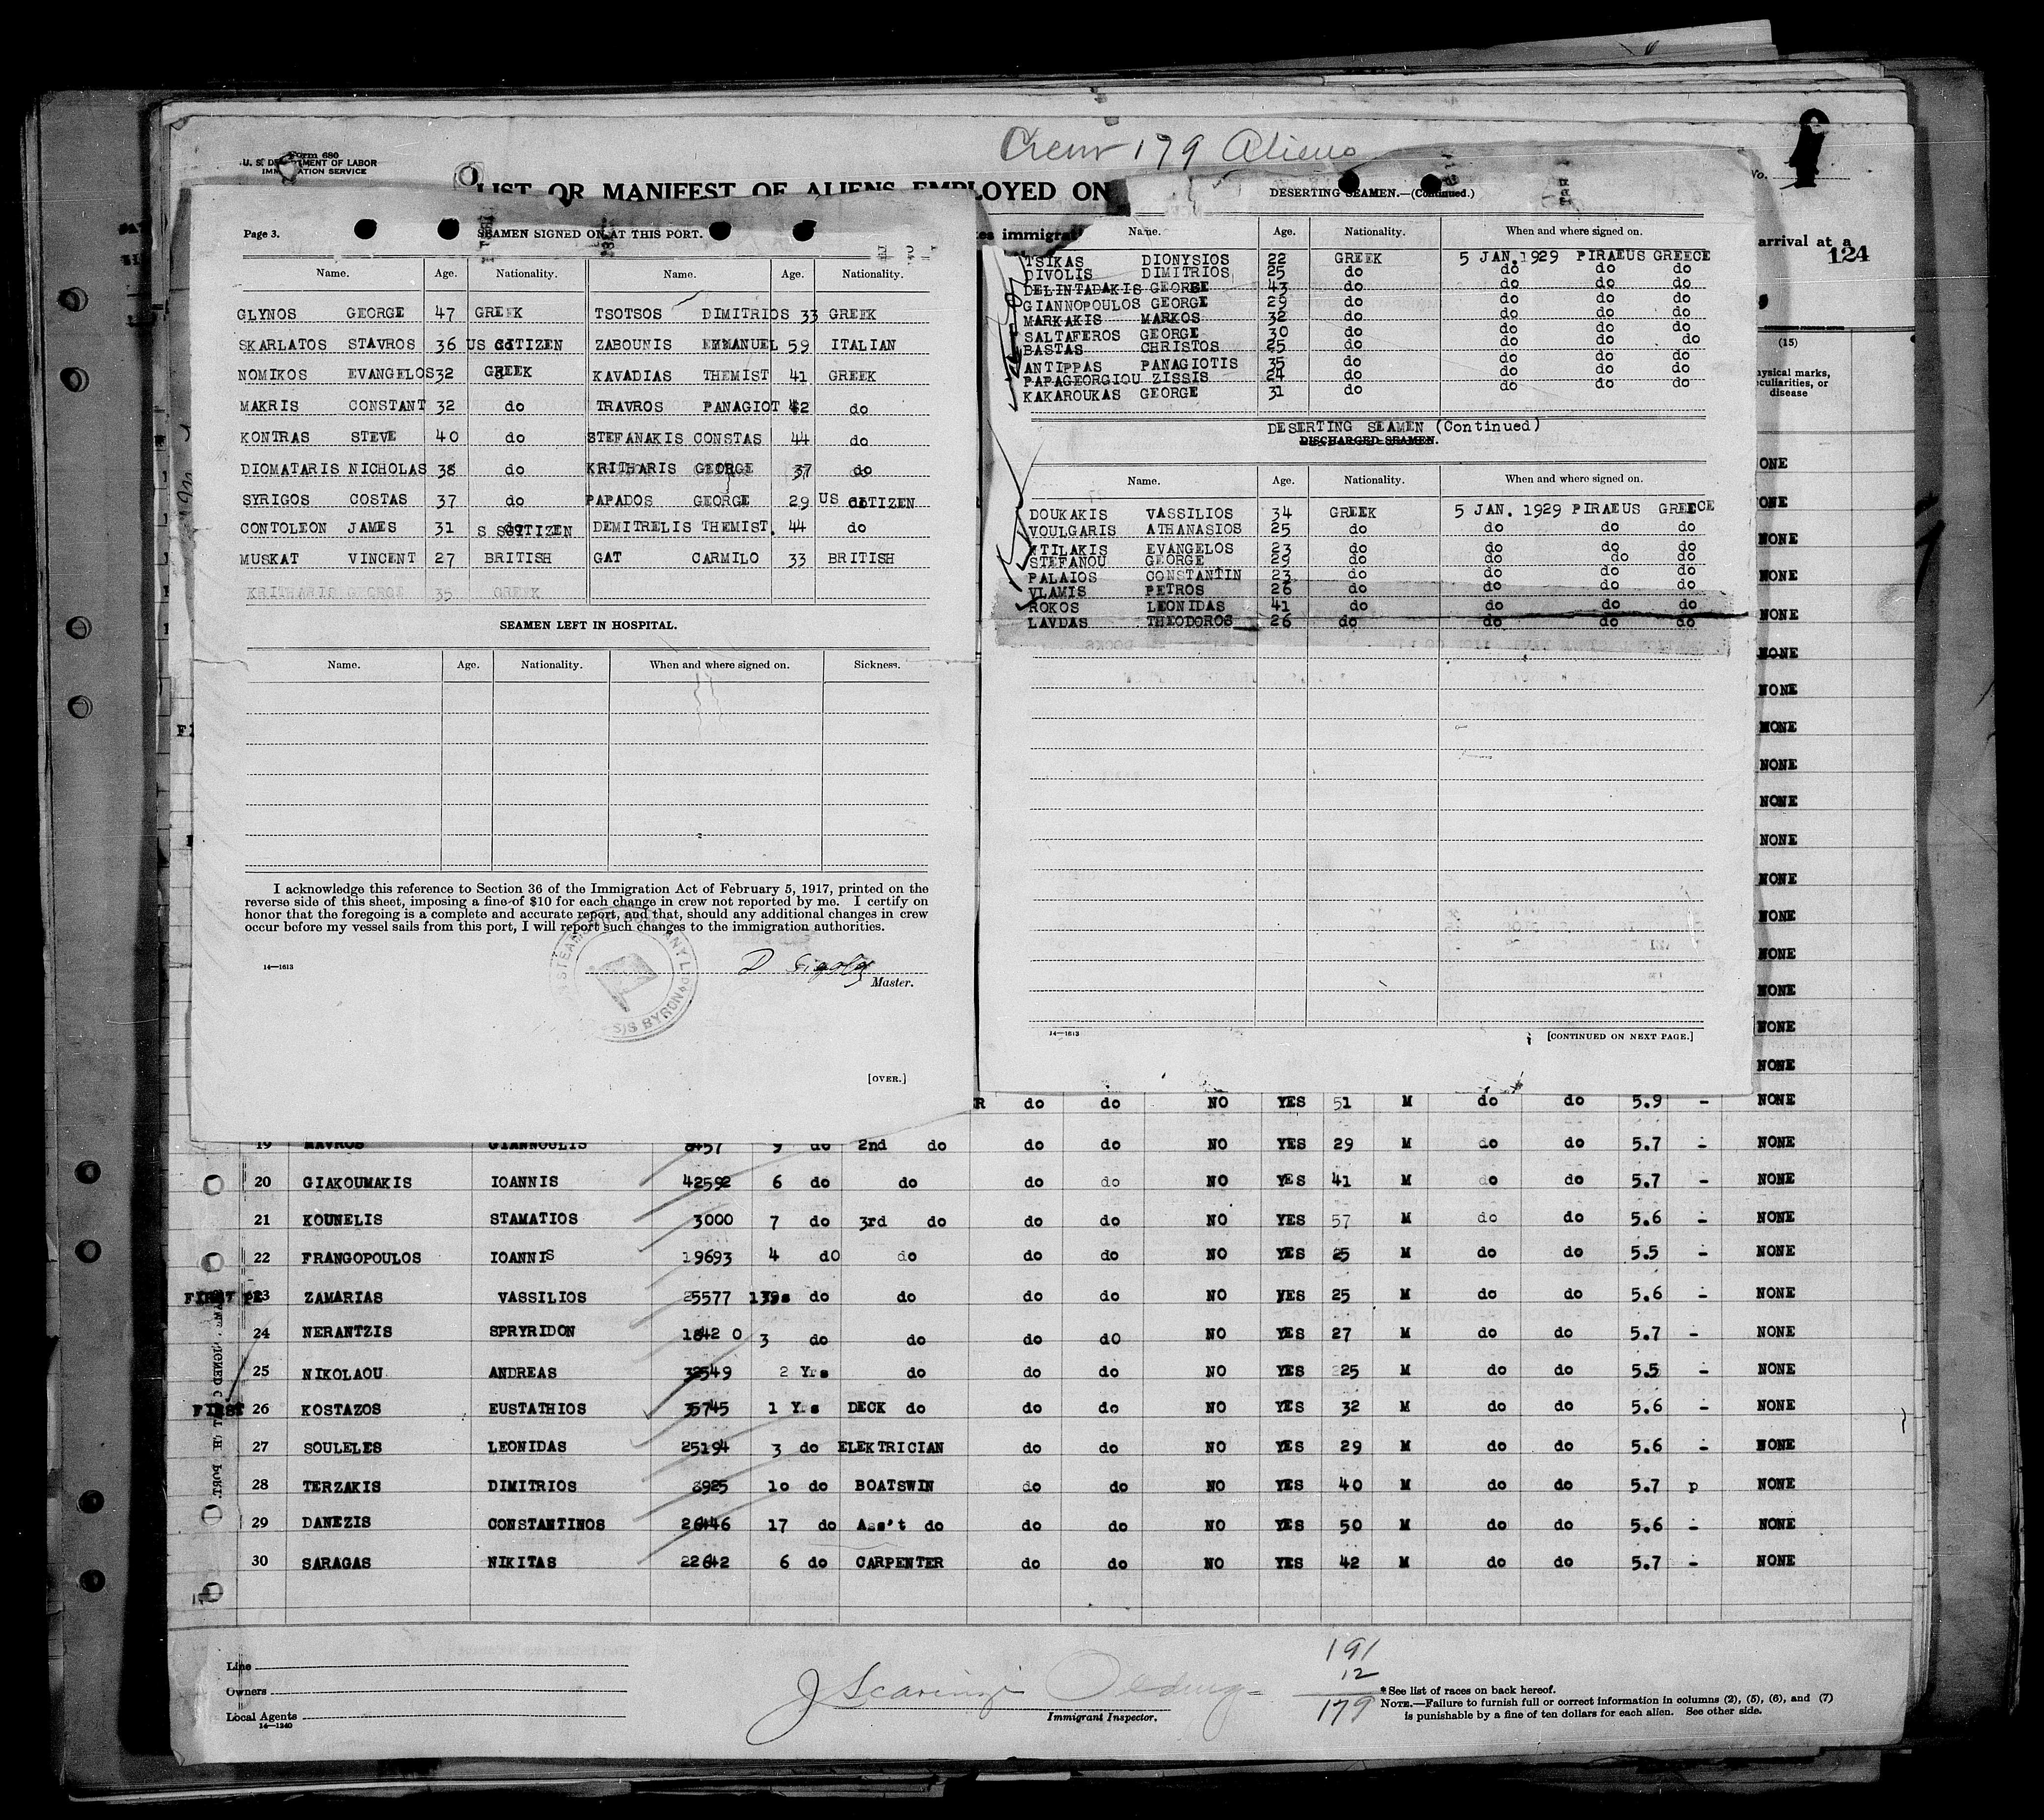 Crew 179 Aliens
Form 680
U. S. DEPARTMENT OF LABOR
IMMIGRATION SERVICE
LIST OR MANIFEST OF ALIENS EMPLOYED ON
No.
arrival at a
124
Page 3.
SEAMEN SIGNED ON AT THIS PORT.
Name. Age. Nationality. Name. Age. Nationality.
GLYNOS GEORGE 47 GREEK TSOTSOS DIMITRIOS 33 GREEK
SKARLATOS STAVROS 36 US CITIZEN ZABOUNIS EMMANUEL 59 ITALIAN
NOMIKOS EVANGELOS 32 GREEK KAVADIAS THEMIST 41 GREEK
MAKRIS CONSTANT 32 do TRAVROS PANAGIOT 42 do
KONTRAS STEVE 40 do STEFANAKIS CONSTAS 44 do
DIOMATARIS NICHOLAS 38 do KRITHARIS GEORGE 37 do
SYRIGOS COSTAS 37 do PAPADOS GEORGE 29 US CITIZEN
CONTOLEON JAMES 31 S CITIZEN DEMITRELIS THEMIST. 44 do
MUSKAT VINCENT 27 BRITISH GAT CARMILO 33 BRITISH
KRITHARIS GEORGE 35 GREEK
SEAMEN LEFT IN HOSPITAL.
Name. Age. Nationality. When and where signed on. Sickness.
I acknowledge this reference to Section 36 of the Immigration Act of February 5, 1917, printed on the
reverse side of this sheet, imposing a fine of $10 for each change in crew not reported by me. I certify on
honor that the foregoing is a complete and accurate report, and that, should any additional changes in crew
occur before my vessel sails from this port, I will report such changes to the immigration authorities.
14—1613
Master.
S/S BYRON
[OVER.]
immigrat
DESERTING SEAMEN.—(Continued.)
Name. Age. Nationality. When and where signed on.
TSIKAS DIONYSIOS 22 GREEK 5 JAN. 1929 PIRAEUS GREECE
DIVOLIS DIMITRIOS 25 do do do do
DELINTADAKIS GEORGE 43 do do do do
GIANNOPOULOS GEORGE 29 do do do do
MARKAKIS MARKOS 32 do do do do
SALTAFEROS GEORGE 30 do do do do
BASTAS CHRISTOS 25 do do do do
ANTIPPAS PANAGIOTIS 35 do do do do
PAPAGEORGIOU ZISSIS 24 do do do do
KAKAROUKAS GEORGE 31 do do do do
DESERTING SEAMEN (Continued)
DISCHARGED SEAMEN.
Name. Age. Nationality. When and where signed on.
DOUKAKIS VASSILIOS 34 GREEK 5 JAN. 1929 PIRAEUS GREECE
VOULGARIS ATHANASIOS 25 do do do do
NTILAKIS EVANGELOS 23 do do do do
STEFANOU GEORGE 29 do do do do
PALAIOS CONSTANTIN 23 do do do do
VLAMIS PETROS 26 do do do do
ROKOS LEONIDAS 41 do do do do
LAVDAS THEODOROS 26 do do do do
14—1613
[CONTINUED ON NEXT PAGE.]
(15)
physical marks,
peculiarities, or
disease
ONE
ONE
NONE
NONE
NONE
NONE
NONE
NONE
NONE
NONE
NONE
NONE
NONE
NONE
NONE
NONE
NONE
R do do NO YES 51 M do do 5.9 - NONE
19 MAVROS GIANNOULIS 8457 9 do 2nd do do do NO YES 29 M do do 5.7 - NONE
20 GIAKOUMAKIS IOANNIS 42592 6 do do do do NO YES 41 M do do 5.7 - NONE
21 KOUNELIS STAMATIOS 3000 7 do 3rd do do do NO YES 57 M do do 5.6 - NONE
22 FRANGOPOULOS IOANNIS 19693 4 dO do do do NO YES 25 M do do 5.5 - NONE
FIRST 23 ZAMARIAS VASSILIOS 25577 do do do do NO YES 25 M do do 5.6 - NONE
24 NERANTZIS SPRYRIDON 1842 0 3 do do do dO NO YES 27 M do do 5.7 - NONE
25 NIKOLAOU ANDREAS 32549 2 Yrs do do do NO YES 25 M do do 5.5 - NONE
FIRST 26 KOSTAZOS EUSTATHIOS 35745 1 Yrs DECK do do do NO YES 32 M do do 5.6 - NONE
27 SOULELES LEONIDAS 25194 3 do ELEKTRICIAN do do NO YES 29 M do do 5.6 - NONE
28 TERZAKIS DIMITRIOS 8925 10 do BOATSWIN do do NO YES 40 M do do 5.7 p NONE
29 DANEZIS CONSTANTINOS 26446 17 do Ass't do do do NO YES 50 M do do 5.6 - NONE
30 SARAGAS NIKITAS 22642 6 do CARPENTER do do NO YES 42 M do do 5.7 - NONE
Line
Owners
Local Agents
14—1240
Immigrant Inspector.
191
12
179
*See list of races on back hereof.
NOTE.—Failure to furnish full or correct information in columns (2), (5), (6), and (7)
is punishable by a fine of ten dollars for each alien. See other side.